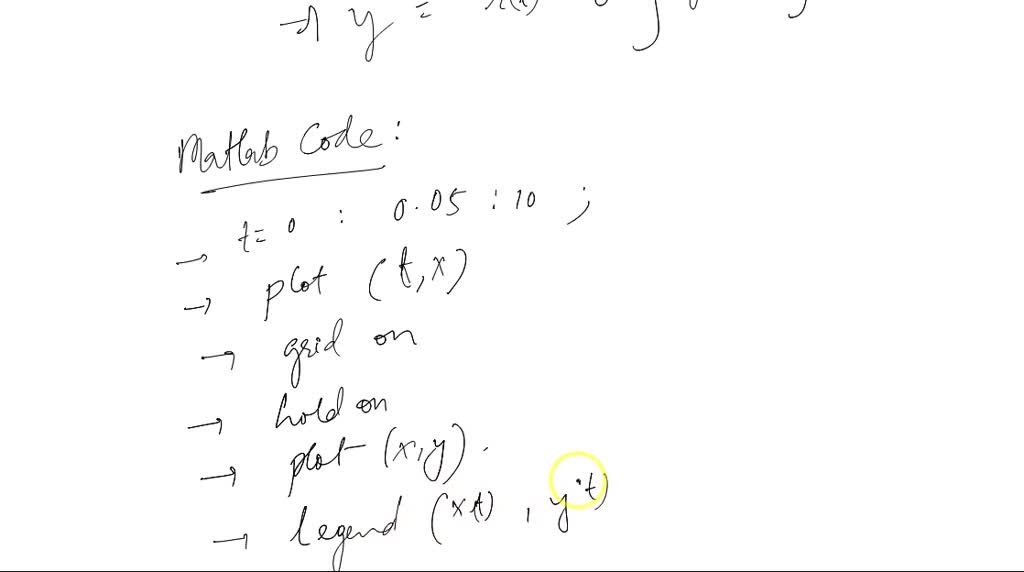 → y =
Matlab Code:
→ t= 0 : 0.05 : 10 ;
→ plot (t,x)
→ grid on
→ hold on
→ plot (x,y).
→ legend (x t) , y t)